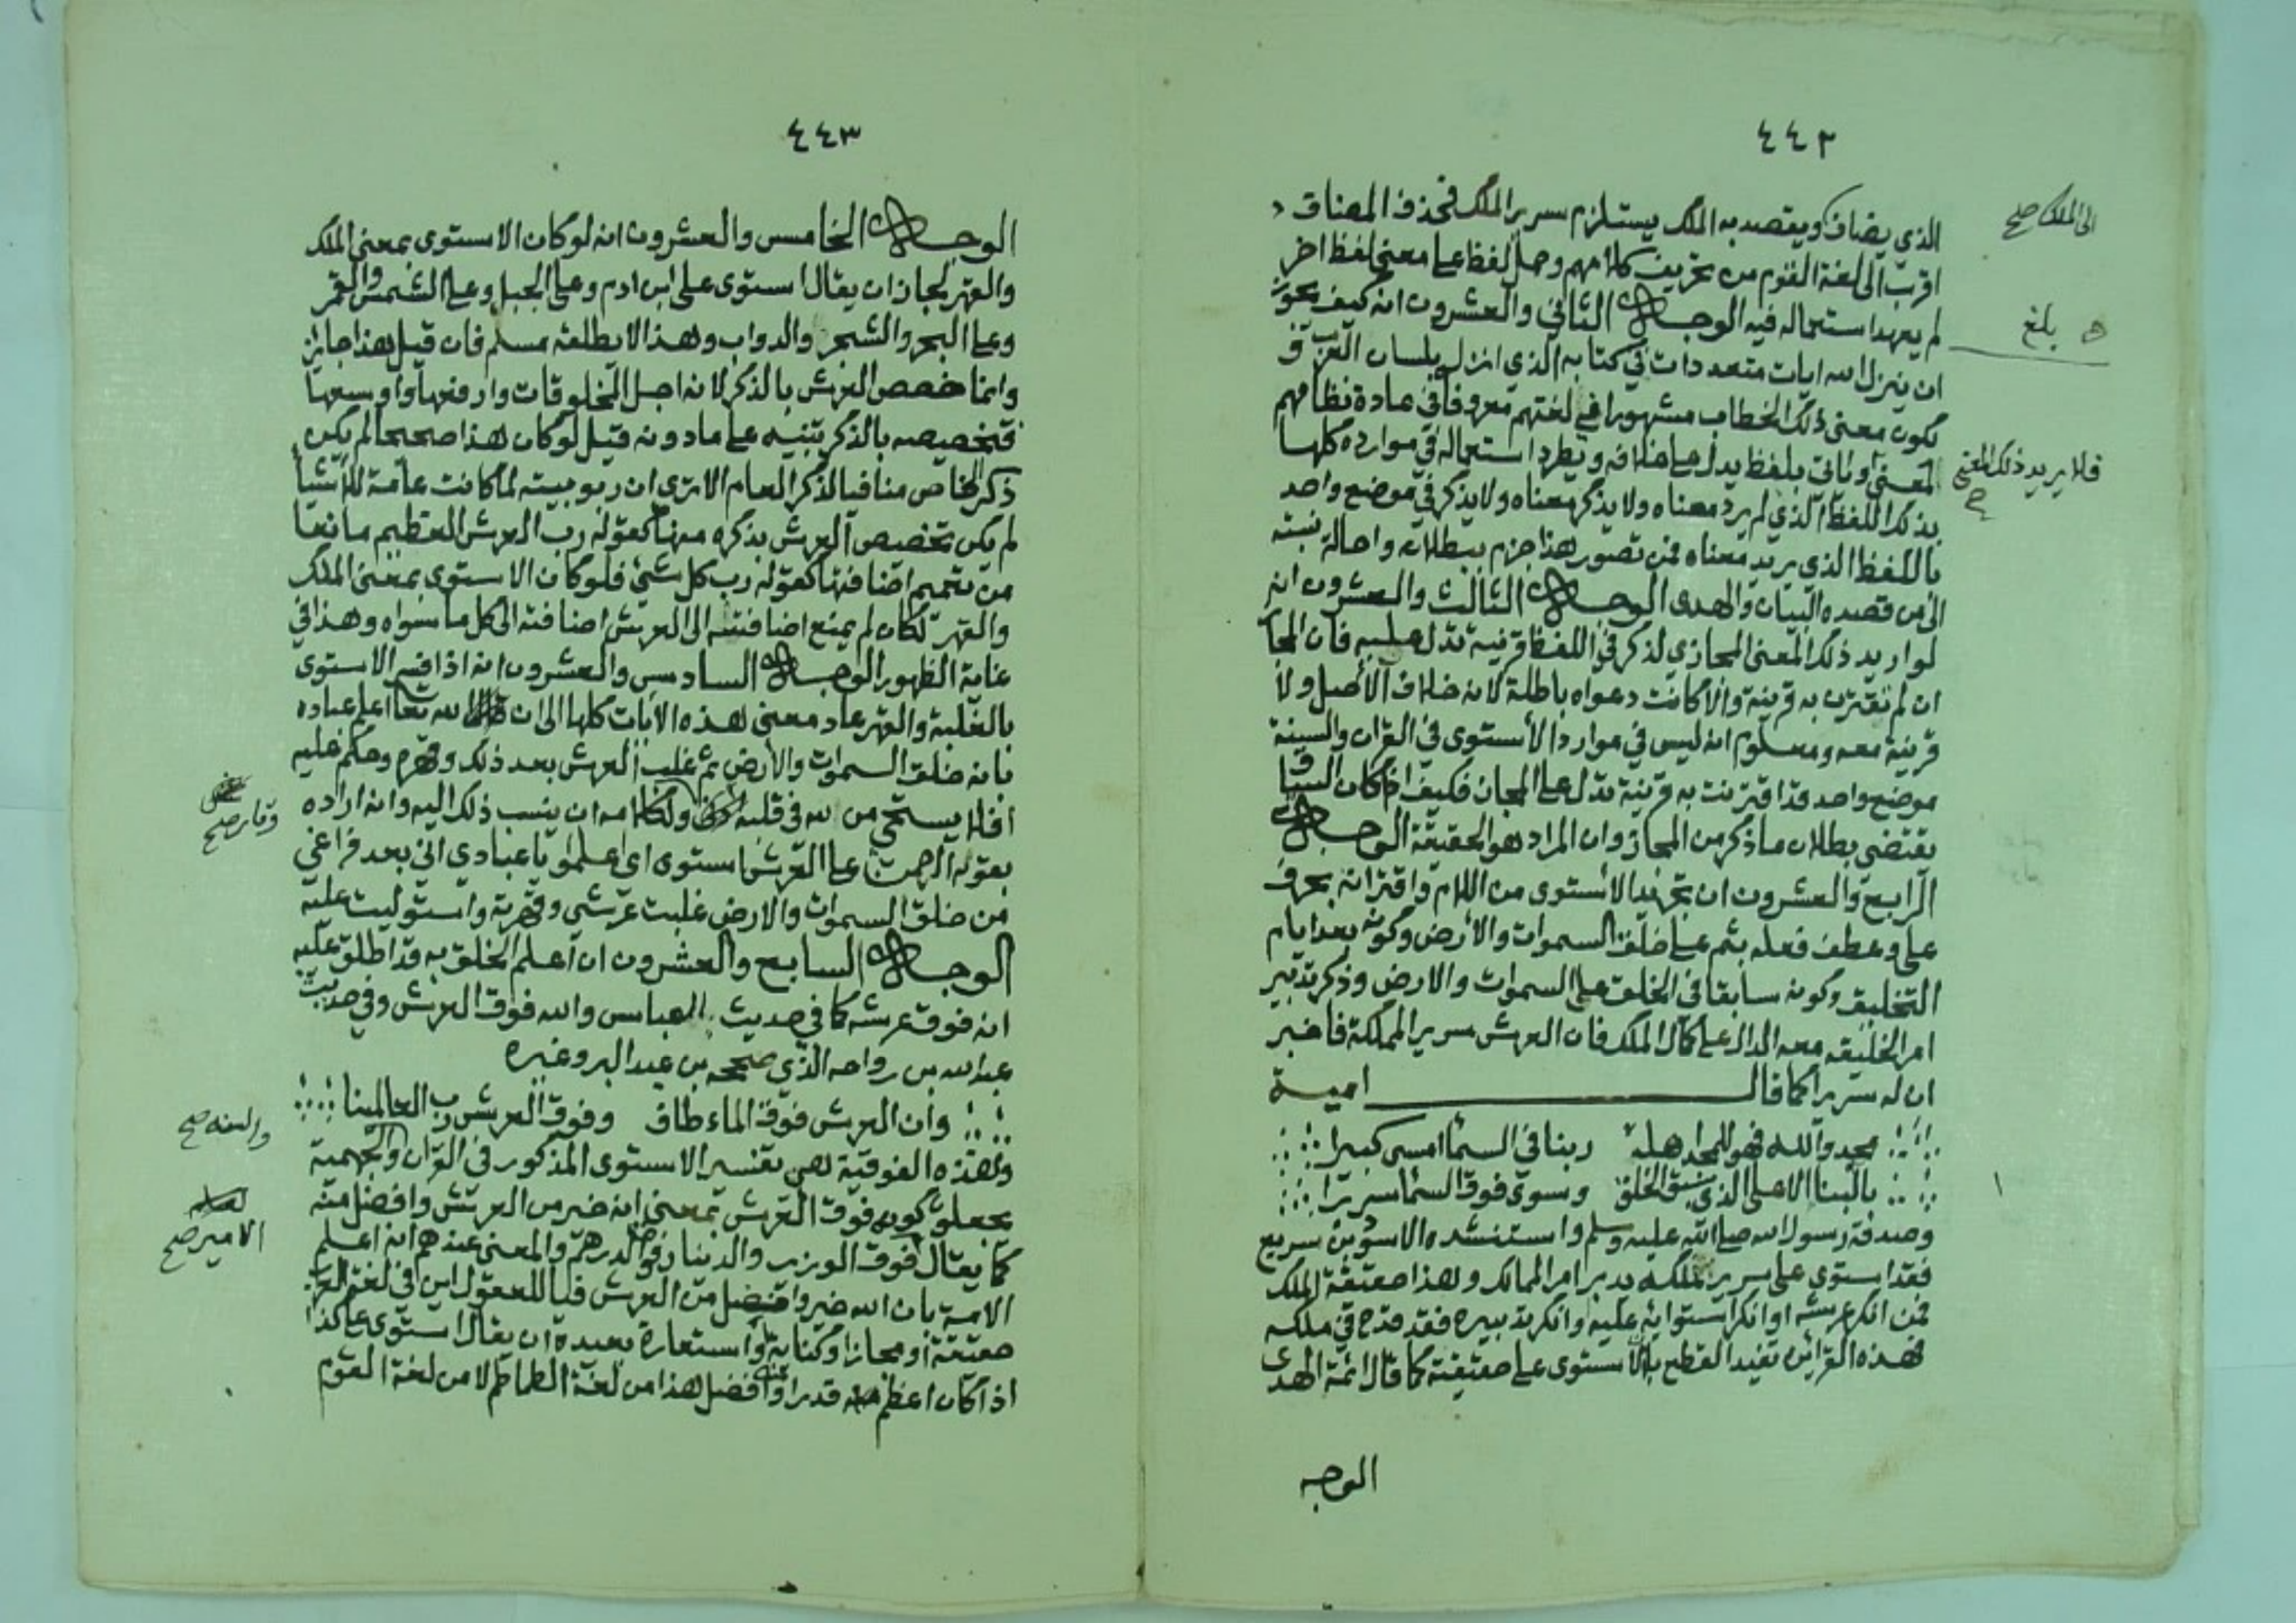 ٤٤٢
الذي يضاف ويقصد به الملك يستلزم سرير الملك فحذف المضاف
الى الملك صح
اقرب الى لغة القوم من تحريف كلامهم وحمل لفظ على معنى لفظ اخر
لم يعهد استعماله فيه الوجه الثاني والعشرون انه كيف يجوز
بلغ
ان ينزل الله ايات متعددات في كتابه الذي انزل بلسان العرب و
يكون معنى ذلك الخطاب مشهورا في لغتهم معروفا في عادة نظامهم
فلا يريد ذلك المعنى صح
المعنى وياتي بلفظ يدل على خلافه ويطرد استعماله في موارده كلها
بذلك اللفظ الذي لم يرد معناه ولا يذكر معناه ولا يذكر في موضع واحد
باللفظ الذي يريد معناه فمن تصور هذا جزم ببطلانه واحالة نسبته
الى من قصده البيان والهدى الوجه الثالث والعشرون انه
لو اريد ذلك المعنى المجازي لذكر في اللفظ قرينة تدل عليه فان المجا
ان لم يقترن به قرينة والا كانت دعواه باطلة لانه خلاف الأصل ولا
قرينة معه ومعلوم انه ليس في موارد الأستوى في القران والسنة
موضع واحد قد اقترنت به قرينة تدل على المجاز فكيف اذا كان السياق
يقتضي بطلان ما ذكر من المجاز وان المراد هو الحقيقة الوجه
الرابع والعشرون ان تجريد الاستوى من اللام واقترانه بحرف
على وعطف فعله بثم على خلق السموات والأرض وكونه بعد ايام
التخليق وكونه سابقا في الخلق على السموات والارض وذكر تدبير
امر الخليقه معه الدال على كمال الملك فان العرش سرير المملكة فاخبر
ان له سريرا كما قال امية
مجدوا الله فهو للمجد اهله ربنا في السما امسى كبيرا
بالبنا الاعلى الذي سبق الخلق وسوى فوق السما سريرا
وصدقه رسول الله صلى الله عليه وسلم واستنشده الاسود بن سريع
فقد استوى على سرير ملكه يدبر امر الممالك وهذا حقيقة الملك
فمن انكر عرشه او انكر استوايه عليه وانكر تدبيره فقد قدح في ملكه
فهذه القرائن تفيد القطع بان الأستوى على حقيقته كما قال ائمة الهدى
الوجه
٤٤٣
الوجه الخامس والعشرون انه لو كان الاستوى بمعنى الملك
والقهر لجاز ان يقال استوى على ابن ادم وعلى الجبل وعلى الشمس والقمر
وعلى البحر والشجر والدواب وهذا لا يطلقه مسلم فان قيل هذا جايز
وانما خصص العرش بالذكر لانه اجل المخلوقات وارفعها واوسعها
فتخصيصه بالذكر تنبيه على ما دونه قيل لو كان هذا صحيحا لم يكن
ذكر الخاص منافيا لذكر العام الا ترى ان ربوبيته لما كانت عامة للأشيا
لم يكن تخصيص العرش بذكره منها كقوله رب العرش العظيم مانعا
من تعميم اضافتها كقوله رب كل شئ فلو كان الاستوى بمعنى الملك
والقهر لكان لم يمنع اضافته الى العرش اضافته الى كل ما سواه وهذا في
غاية الظهور الوجه السادس والعشرون انه اذا فسر الاستوى
بالغلبة والقهر عاد معنى هذه الايات كلها الى ان الله تعالى اعلم عباده
بانه خلق السموات والأرض ثم غلب العرش بعد ذلك وقهره وحكم عليه
وقار صح
افلا يستحي من لله في قلبه ولكلامه ان ينسب ذلك اليه وانه اراده
بقوله الرحمن على العرش استوى اي اعلموا يا عبادي اني بعد فراغي
من خلق السموات والارض غلبت عرشي وقهرته واستوليت عليه
الوجه السابع والعشرون ان اعلم الخلق به قد اطلق عليه
انه فوق عرشه كما في حديث العباس والله فوق العرش وفي حديث
عبد الله بن رواحه الذي صححه بن عبد البر وغيره
وان العرش فوق الماء طاف وفوق العرش رب العالمينا
والسنه صح
وهذه الفوقية هي تفسير الاستوى المذكور في القران والجهمية
يجعلون كونه فوق العرش بمعنى انه خير من العرش وافضل منه
الامير صح
كما يقال فوق الوزير والدينار فوق الدرهم والمعنى عندهم انه اعلم
الامة بان الله خير وافضل من العرش فيا للعقول اين في لغة العرب
حقيقة او مجازا او كناية او استعارة بعيدة ان يقال استوى على كذا
اذا كان اعظم منه قدرا وافضل هذا من لغة الطماطم لا من لغة القوم